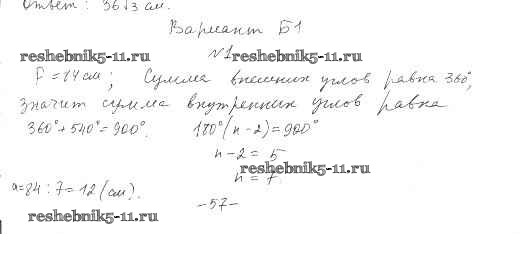 Ответ: 36√3 см.
Вариант Б1
reshebnik5-11.ru №1 reshebnik5-11.ru
P = 84 см; Сумма внешних углов равна 360°,
значит сумма внутренних углов равна
360° + 540° = 900°. 180°(n-2) = 900°
n-2 = 5
reshebnik5-11.ru
n = 7.
a = 84 : 7 = 12 (см).
reshebnik5-11.ru
-57-